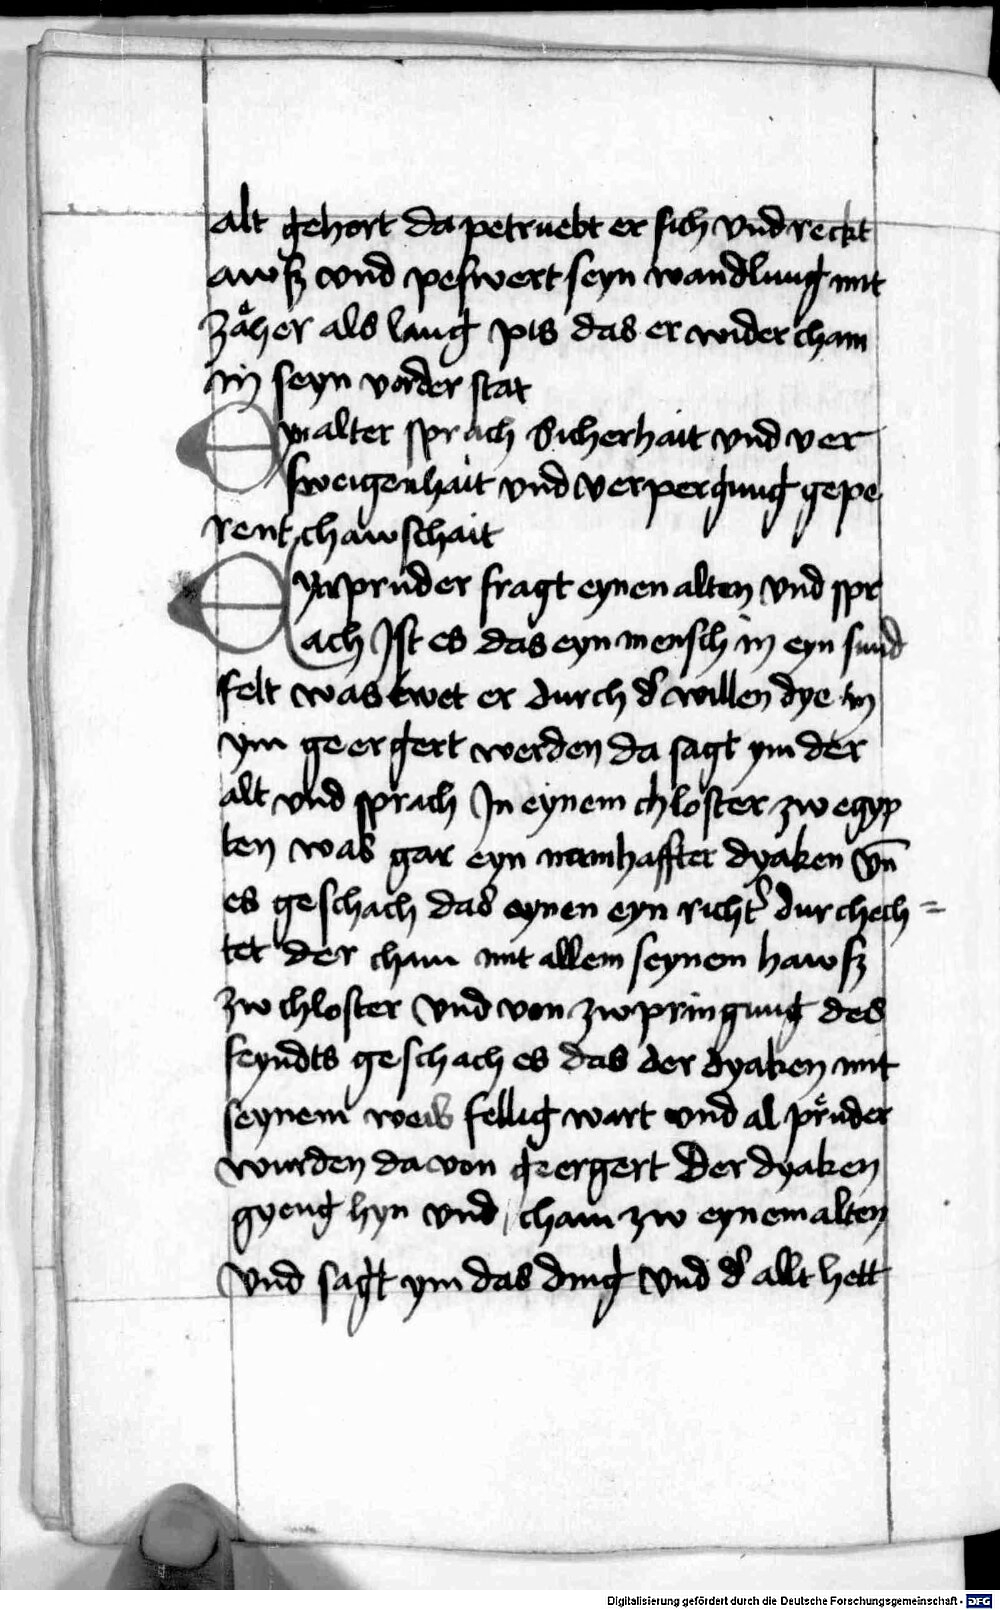 alt gehort da petruebt er sich vnd reckt
awsz vnd peswert seyn wandlung mit
zäher als lang pis das er wider cham
in seyn voder stat
Eyn alter sprach Sicherhait vnd ver
sweigenhait vnd verpergung gepe
rent chawschait
Eyn prüder fragt eynen alten vnd spr
ach Ist es das eyn mensch in eyn sund
felt was twet er durch d' willen dye in
ym geergert werden da sagt ym der
alt vnd sprach In eynem chloster zw egyp
ten was gar eyn namhaffter dyaken vn̄
es geschach das eynen eyn richt' durchech=
tet der cham mit allem seynem hawsz
zw chloster vnd von zwpringung des
feyndts geschach es das der dyaken mit
seynem weib fellig wart vnd al prüder
wurden davon geergert Der dyaken
gyeng hyn vnd cham zw eynem alten
vnd sagt ym das ding vnd d' allt hett
Digitalisierung gefördert durch die Deutsche Forschungsgemeinschaft - DFG